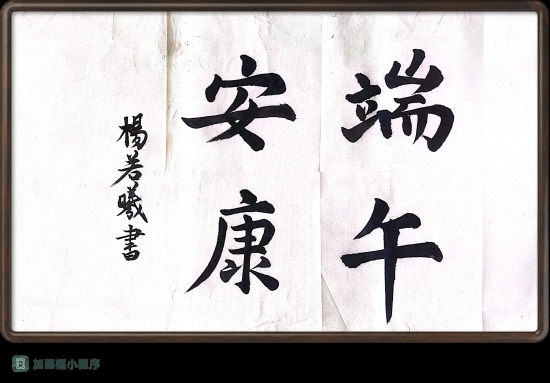 端午
安康
楊若曦書
加画框小程序